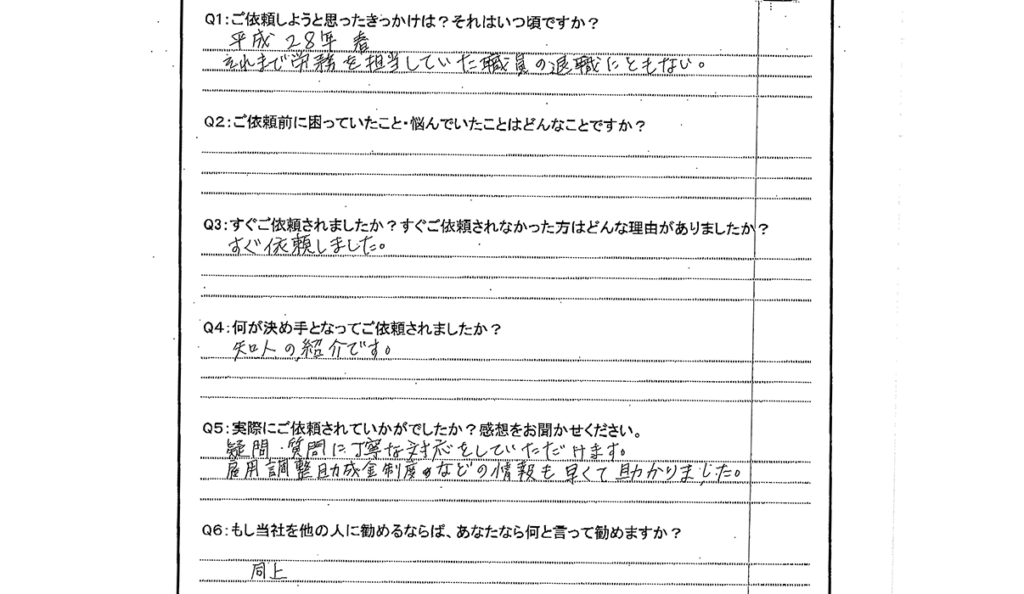 Q1:ご依頼しようと思ったきっかけは?それはいつ頃ですか?
平成 28年 春
それまで労務を担当していた職員の退職にともない。
Q2:ご依頼前に困っていたこと・悩んでいたことはどんなことですか?
Q3:すぐご依頼されましたか?すぐご依頼されなかった方はどんな理由がありましたか?
すぐ依頼しました。
Q4:何が決め手となってご依頼されましたか?
知人の紹介です。
Q5:実際にご依頼されていかがでしたか?感想をお聞かせください。
疑問・質問に丁寧な対応をしていただけます。
雇用調整助成金制度などの情報も早くて助かりました。
Q6:もし当社を他の人に勧めるならば、あなたなら何と言って勧めますか?
同上